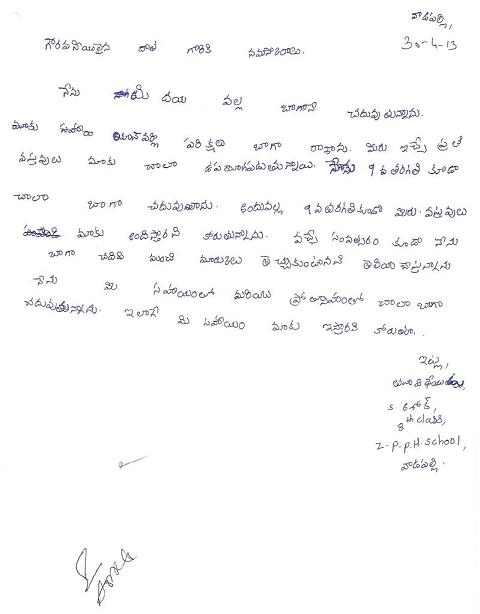 వాడపల్లి,
30-4-13
గౌరవనీయులైన దాత గారికి నమస్కారాలు.
నేను మీ దయ వల్ల బాగానే చదువుతున్నాను.
మాకు పరిక్షలు బాగా రాశాను. మీరు ఇచ్చే ప్రతి
వస్తువులు మాకు చాలా ఉపయోగపడుతున్నాయి. నేను 9వ తరగతి కూడా
చాలా బాగా చదువుతాను. అందువల్ల 9వ తరగతికూడా మీరు వస్తువులు
మాకు అందిస్తారని కోరుతున్నాను. వచ్చే సంవత్సరం కూడా నేను
బాగా చదివి మంచి మార్కులు తెచ్చుకుంటానని తెలియచేస్తున్నాను
నేను మీ సహాయంతో మరియు ప్రోత్సాహంతో చాలా బాగా
చదువుతున్నాను. ఇలానే మీ సహాయం మాకు ఇస్తారని కోరుతూ..
ఇట్లు,
S. అశోక్,
8th class,
Z.P.P.H.School,
వాడపల్లి.